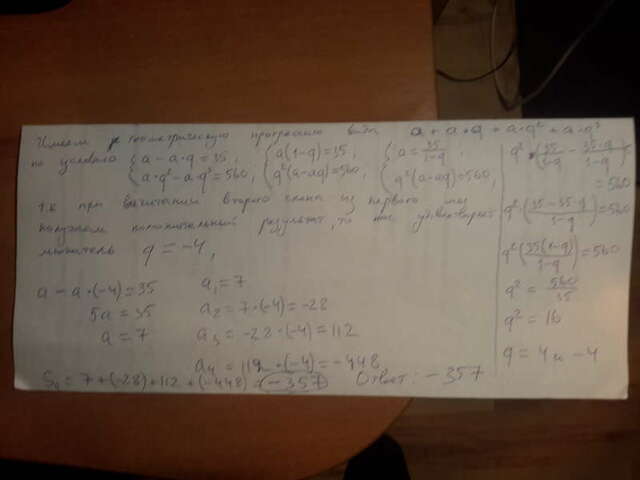 Имеем геометрическую прогрессию вида a + a·q + a·q² + a·q³
по условию {a − a·q = 35, {a(1−q)=35, {a = 35/(1−q),
{a·q² − a·q³ = 560, {q²(a−aq)=560, {q²(a−aq)=560,
т.к при вычитании второго члена из первого мы
получаем положительный результат, то нас удовлетворяет
множитель q = −4,
a − a·(−4) = 35
5a = 35
a = 7
a₁ = 7
a₂ = 7·(−4) = −28
a₃ = −28·(−4) = 112
a₄ = 112·(−4) = −448
S₄ = 7 + (−28) + 112 + (−448) = −357 Ответ: −357
q²·(35/(1−q) − 35·q/(1−q))
= 560
q²·((35−35·q)/(1−q)) = 560
q²(35(1−q)/(1−q)) = 560
q² = 560/35
q² = 16
q = 4 и −4